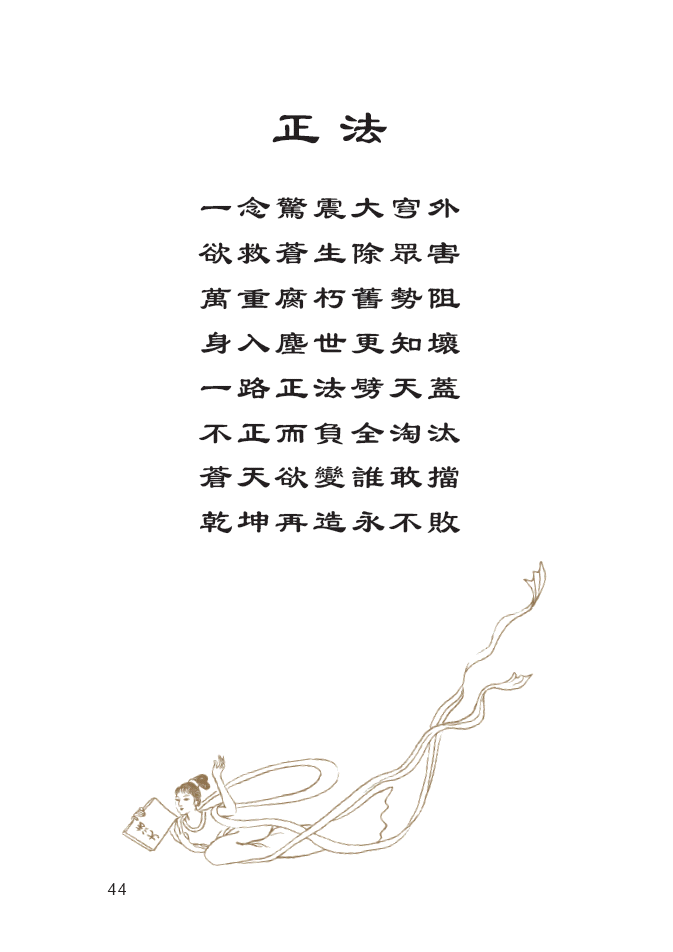 正法
一念驚震大穹外
欲救蒼生除眾害
萬重腐朽舊勢阻
身入塵世更知壞
一路正法劈天蓋
不正而負全淘汰
蒼天欲變誰敢擋
乾坤再造永不敗
44